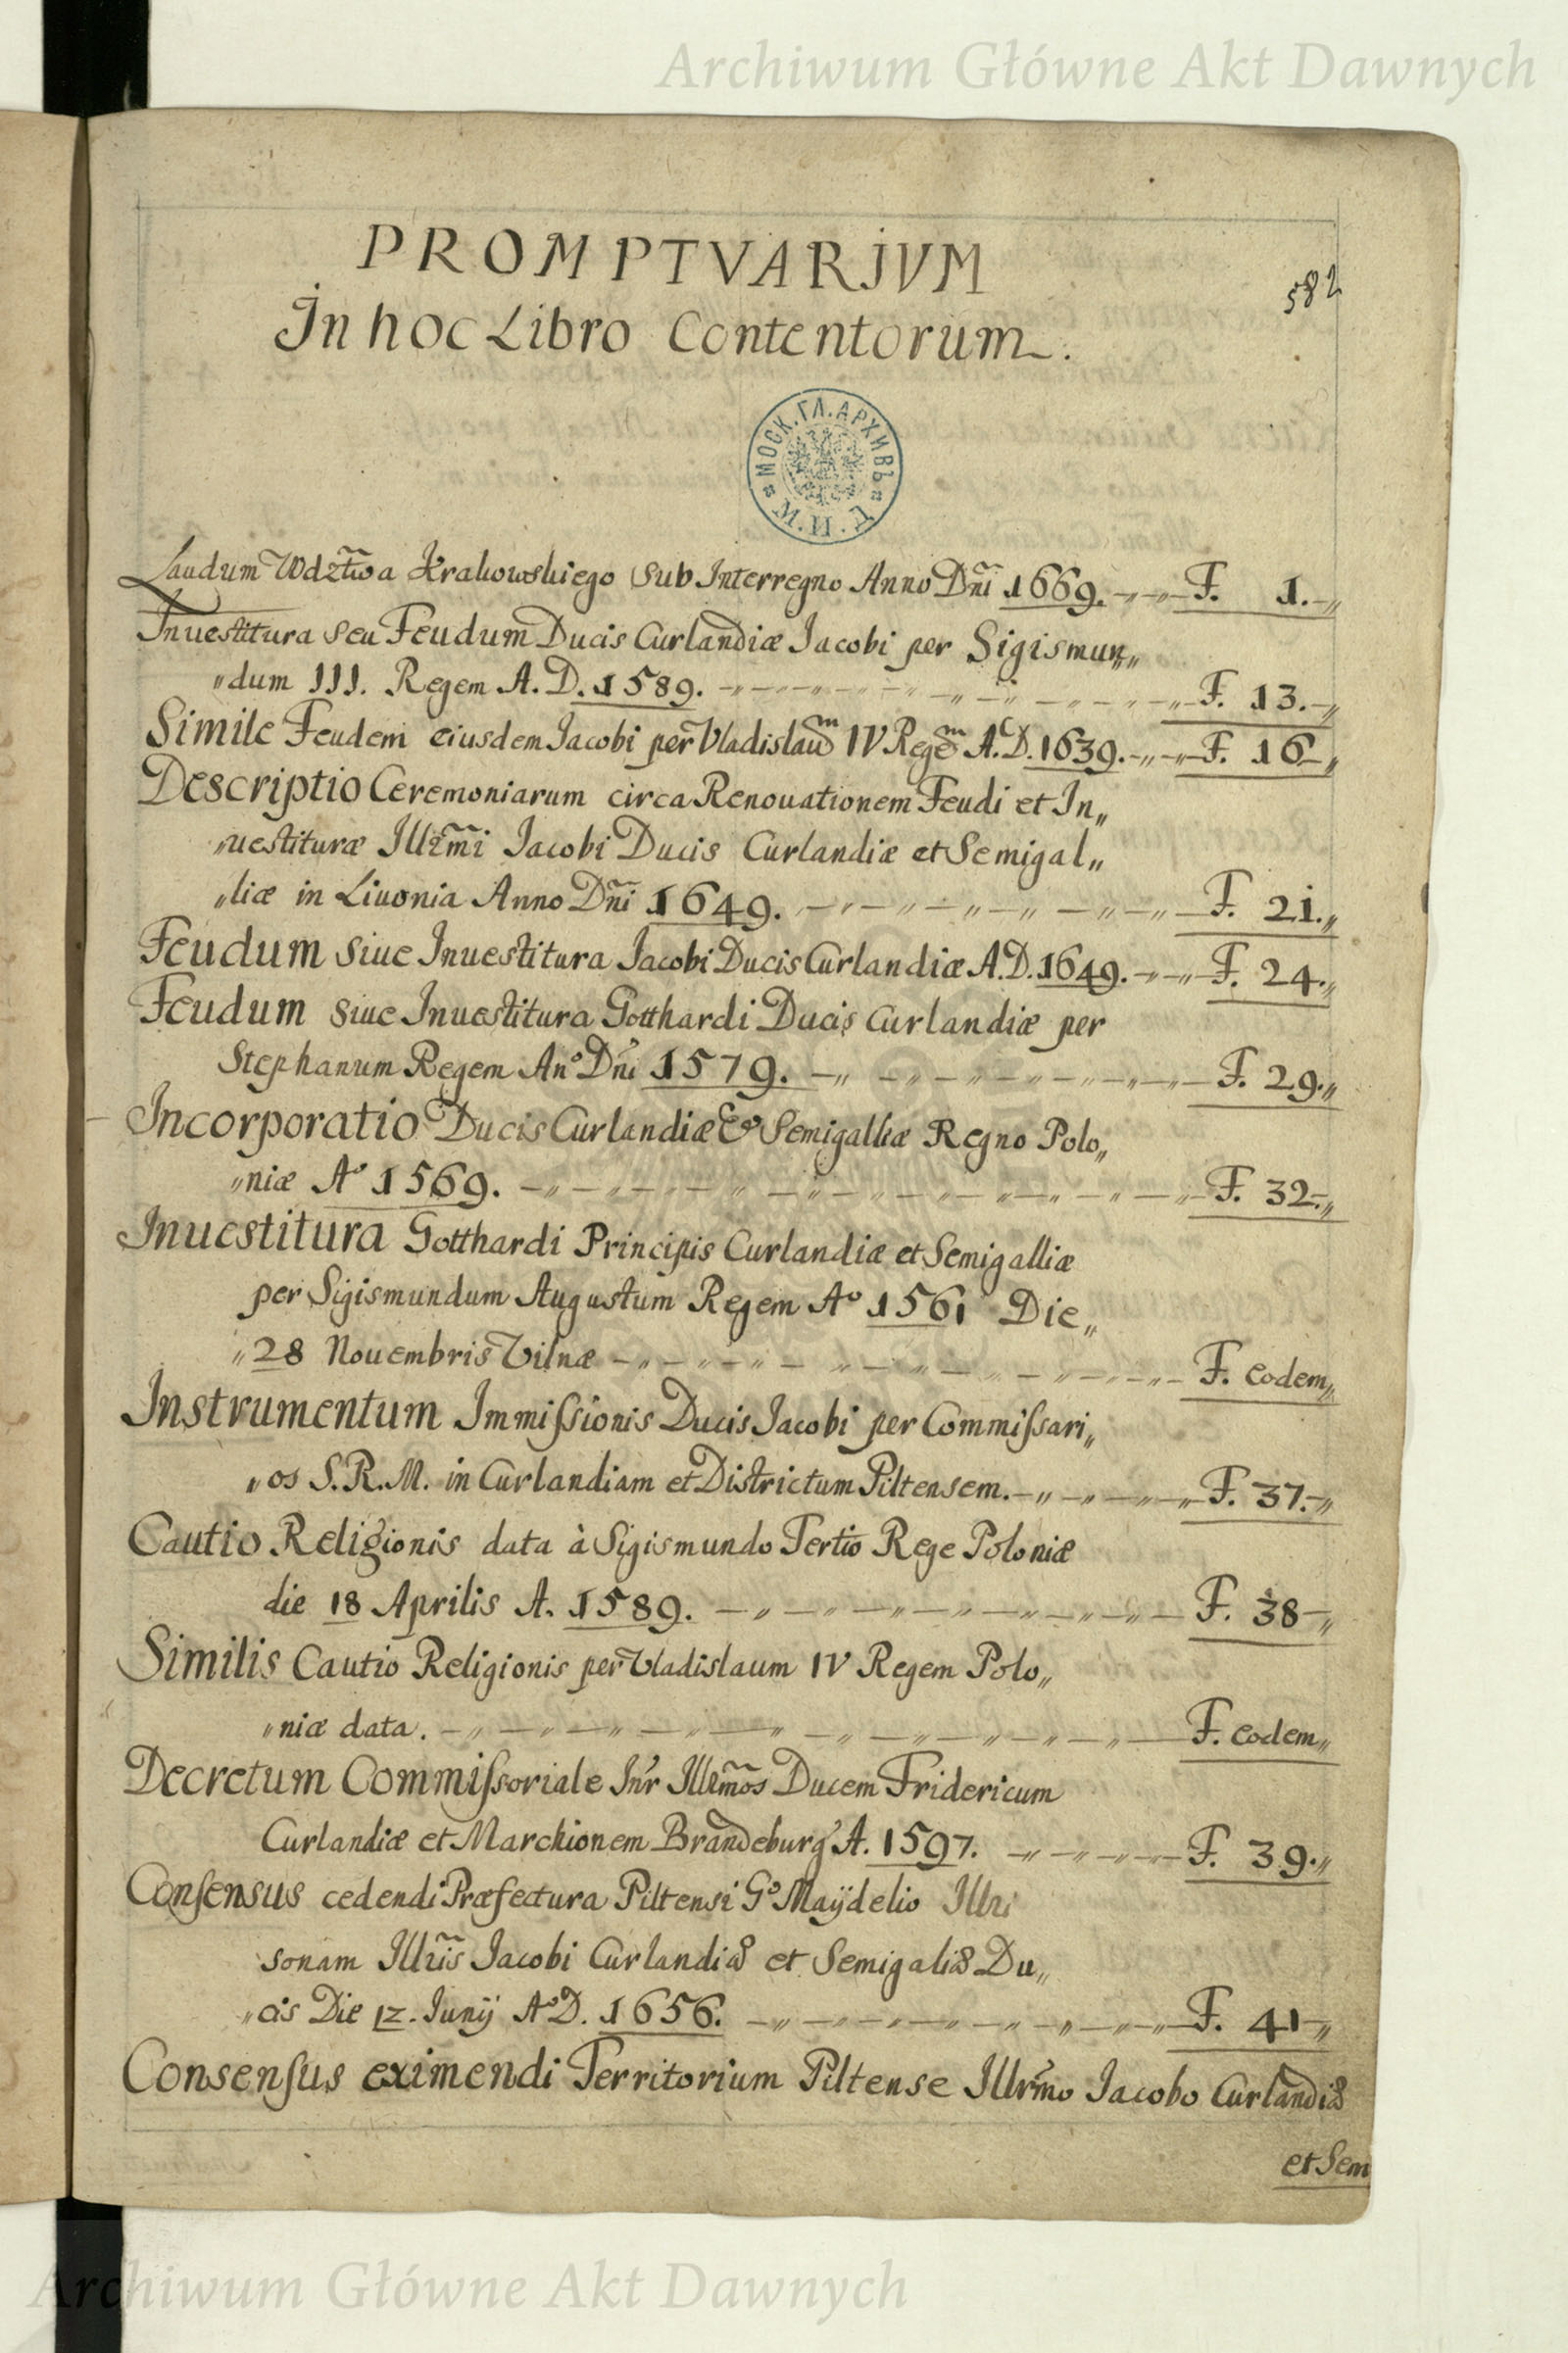 Archiwum Główne Akt Dawnych
PROMPTVARJVM
582
In hoc Libro Contentorum.
МОСК. ГЛ. АРХИВЪ
Laudum Wdztwa Krakowskiego sub Interregno Anno Dñi 1669. F. 1.
Inuestitura seu Feudum Ducis Curlandiæ Jacobi per Sigismun„
„dum III. Regem A. D. 1589. F. 13.
Simile Feudem eiusdem Jacobi per Vladislauͫ IV Regeͫ A. D. 1639. F. 16
Descriptio Ceremoniarum circa Renouationem Feudi et In„
„uestituræ Illr̃mi Jacobi Ducis Curlandiæ et Semigal„
„liæ in Liuonia Anno Dñi 1649. F. 21.
Feudum siue Inuestitura Jacobi Ducis Curlandiæ A. D. 1649. F. 24.
Feudum siue Inuestitura Gotthardi Ducis Curlandiæ per
Stephanum Regem An° Dñi 1579. F. 29.
Incorporatio Ducis Curlandiæ & Semigalliæ Regno Polo„
„niæ A° 1569. F. 32.
Inuestitura Gotthardi Principis Curlandiæ et Semigalliæ
per Sigismundum Augustum Regem A° 1561 Die„
„28 Nouembris Vilnæ F. eodem„
Instrumentum Immiſsionis Ducis Jacobi per Commiſsari„
„os S. R. M. in Curlandiam et Districtum Piltensem. F. 37.
Cautio Religionis data à Sigismundo Tertio Rege Poloniæ
die 18 Aprilis A. 1589. F. 38
Similis Cautio Religionis per Vladislaum IV Regem Polo„
„niæ data. F. eodem„
Decretum Commiſsoriale Int̃r Illr̃mos Ducem Fridericum
Curlandiæ et Marchionem Brandeburg' A. 1597. F. 39.
Conſensus cedendi Præfectura Piltensi G° Maÿdelio
sonam Illr̃is Jacobi Curlandiæ et Semigaliæ Du„
„cis Die 12. Junÿ A° D. 1656. F. 41
Consenſus eximendi Territorium Piltense Illr̃mo Jacobo Curlandiæ
et Sem
Archiwum Główne Akt Dawnych